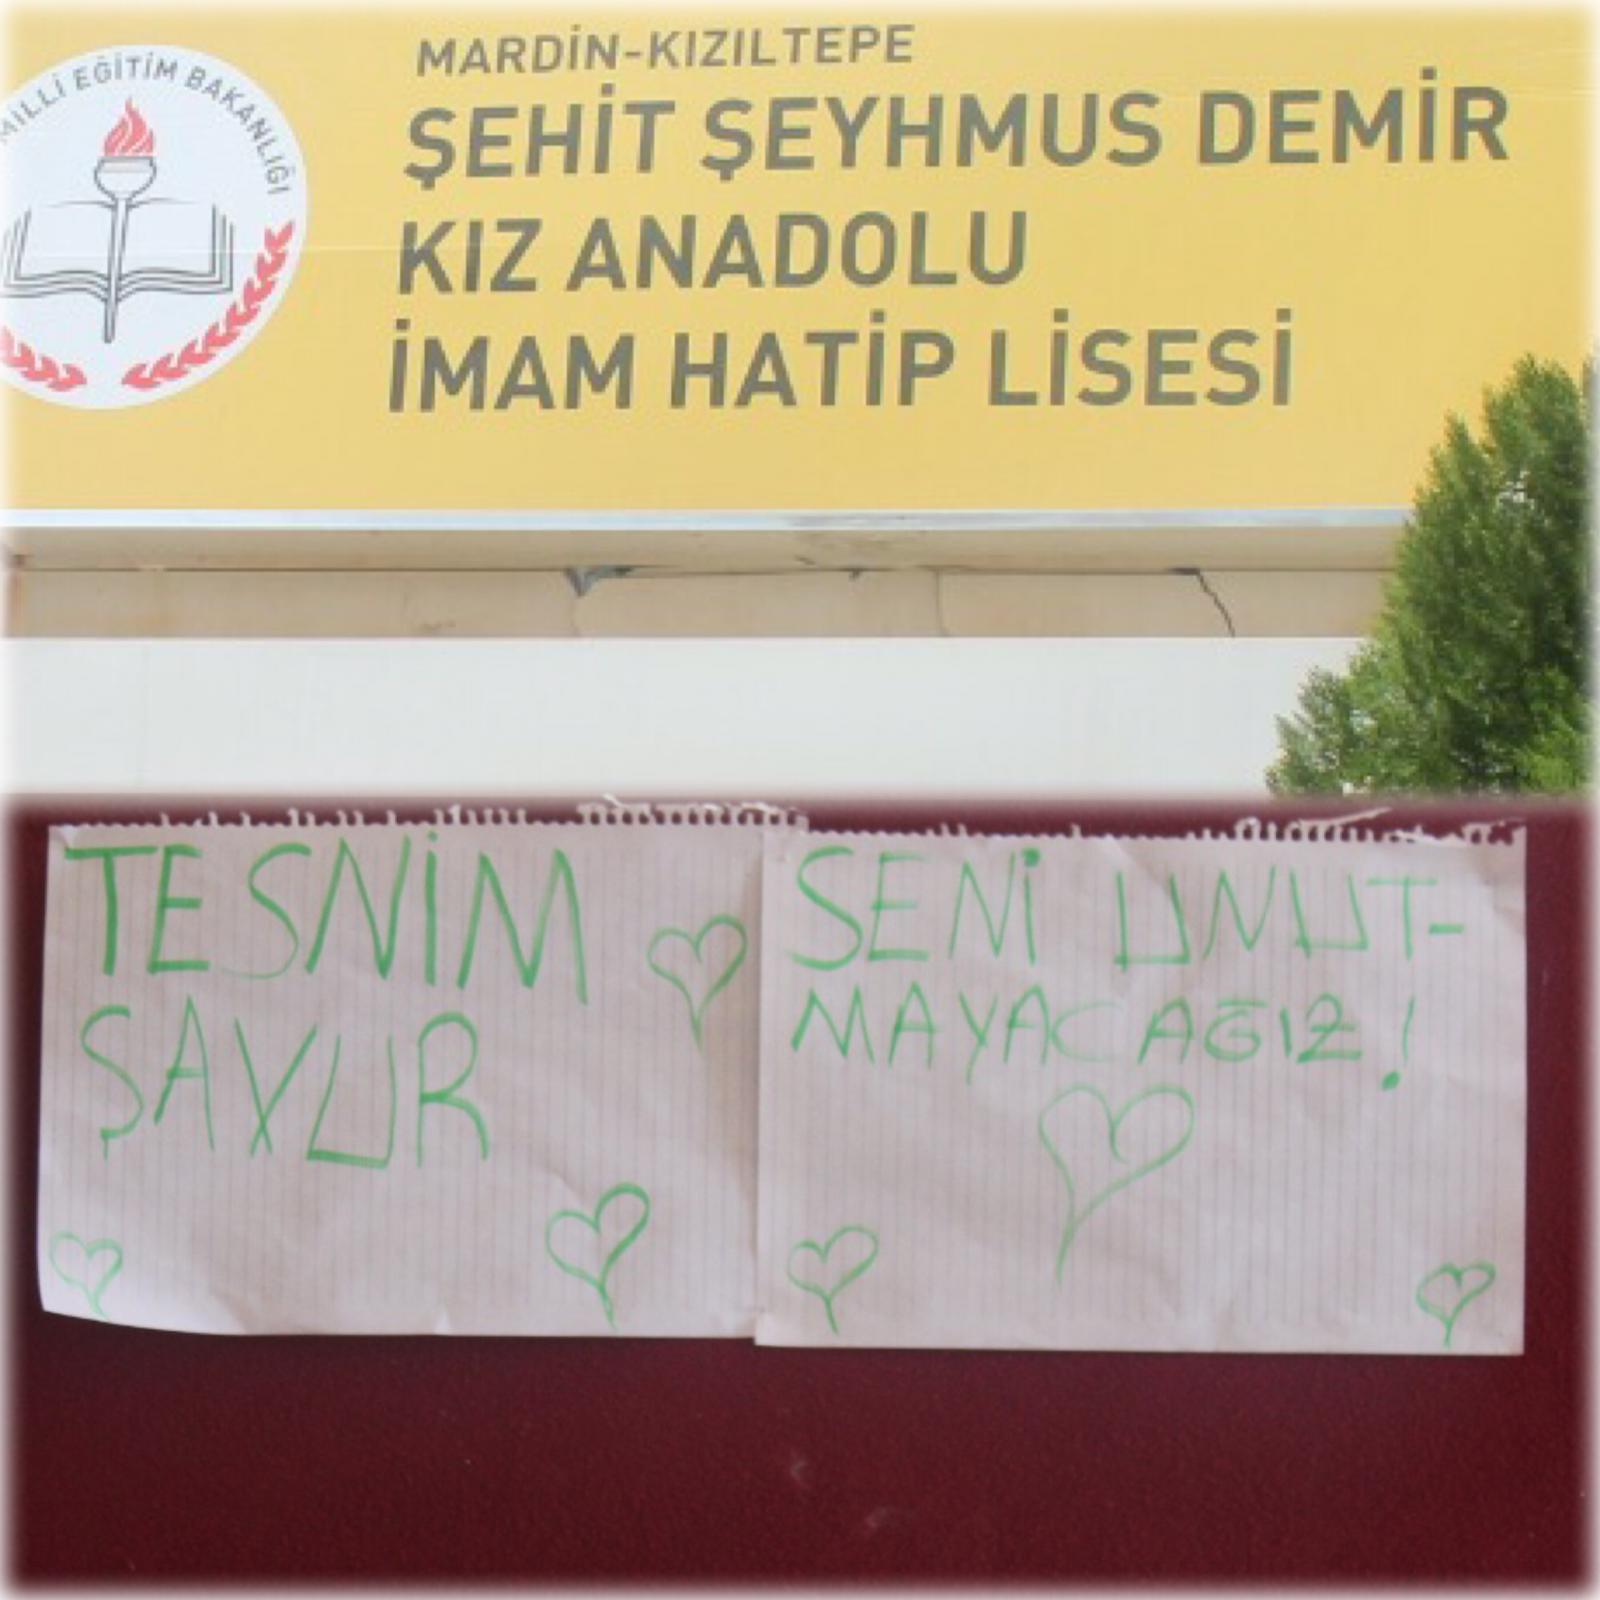 MİLLİ EĞİTİM BAKANLIĞI
MARDİN-KIZILTEPE
ŞEHİT ŞEYHMUS DEMİR
KIZ ANADOLU
İMAM HATİP LİSESİ
TESNİM
ŞAVUR
SENİ UNUT-
MAYACAĞIZ!